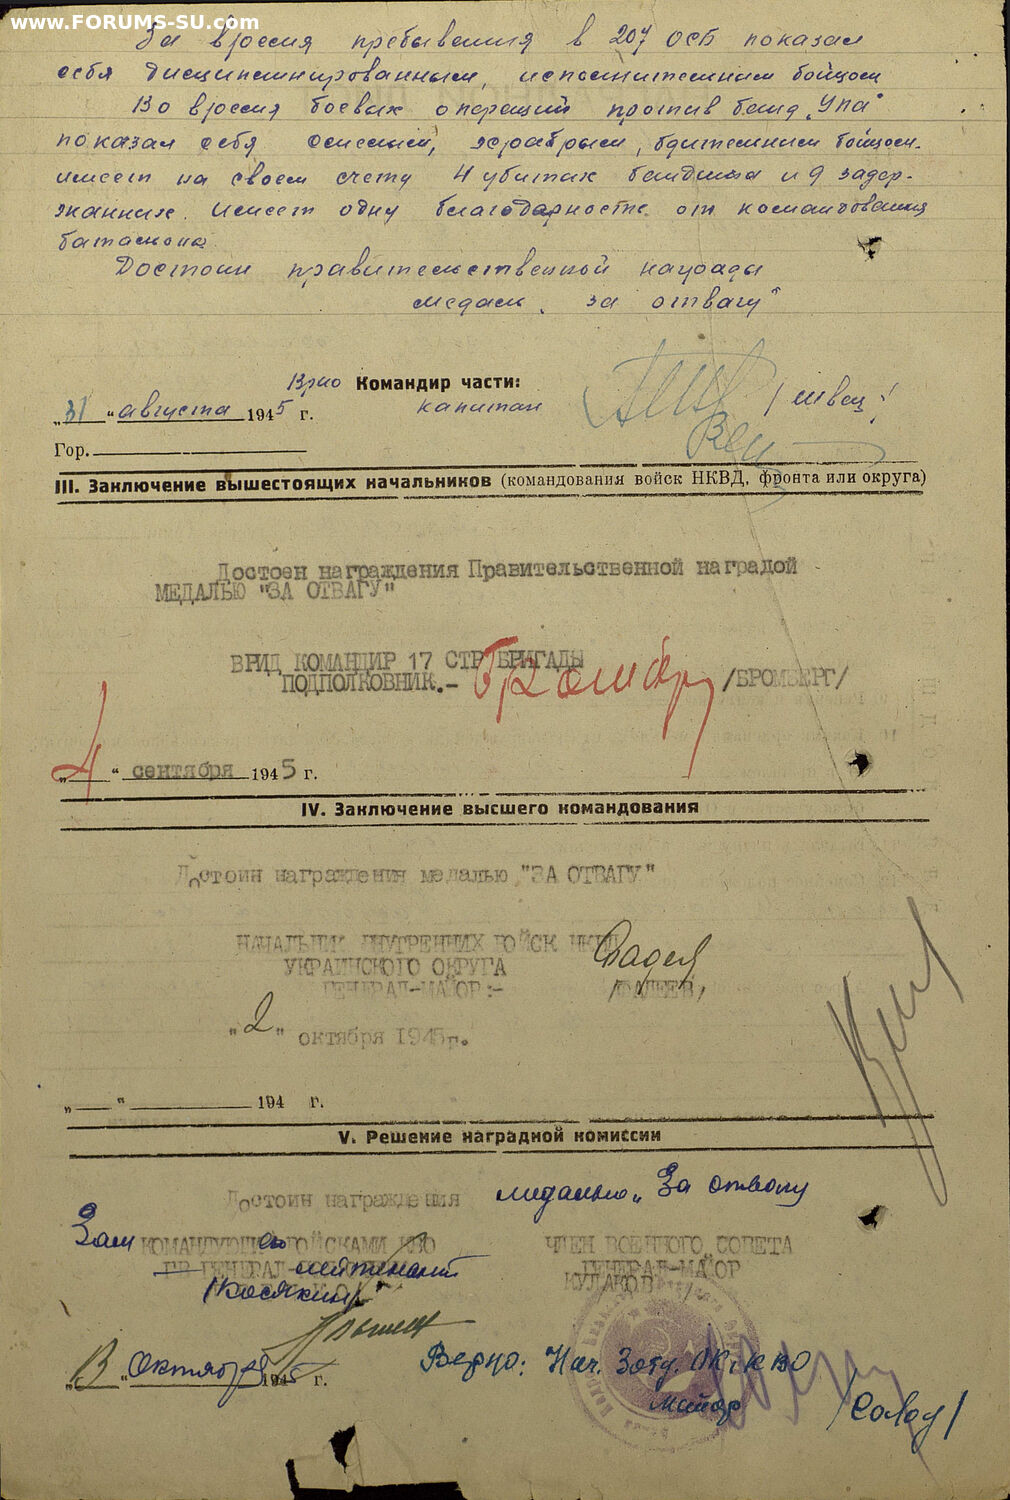 www.FORUMS-SU.com
За время пребывания в 207 ОСБ показал
себя дисциплинированным, исполнительным бойцом
Во время боевых операций против банд „Упа"
показал себя смелым, храбрым, бдительным бойцом.
имеет на своем счету 4 убитых бандита и 9 задер-
жанных. имеет одну благодарность от командования
батальона
Достоин правительственной награды
медаль „за отвагу"
Врио Командир части:
капитан /Швец/
„31" августа 1945 г.
Гор.
III. Заключение вышестоящих начальников (командования войск НКВД, фронта или округа)
Достоен награждения Правительственной наградой
МЕДАЛЬЮ "ЗА ОТВАГУ"
ВРИД КОМАНДИР 17 СТР БРИГАДЫ
ПОДПОЛКОВНИК.- /БРОМБЕРГ/
„4" сентября 1945 г.
IV. Заключение высшего командования
Достоин награждения медалью "ЗА ОТВАГУ"
НАЧАЛЬНИК ВНУТРЕННИХ ВОЙСК НКВД
УКРАИНСКОГО ОКРУГА
ГЕНЕРАЛ-МАЙОР:- /ФАДЕЕВ/
"2" октября 1945г.
„ " 194 г.
V. Решение наградной комиссии
Достоин награждения медалью „За отвагу
Зам КОМАНДУЮЩ ВОЙСКАМИ КВО ЧЛЕН ВОЕННОГО СОВЕТА
ГЕНЕРАЛ-лейтенант ГЕНЕРАЛ-МАЙОР
/Косякин/ КУЛАКОВ
Верно: Нач. ОК КВО
„13" Октября 1945 г.
Майор